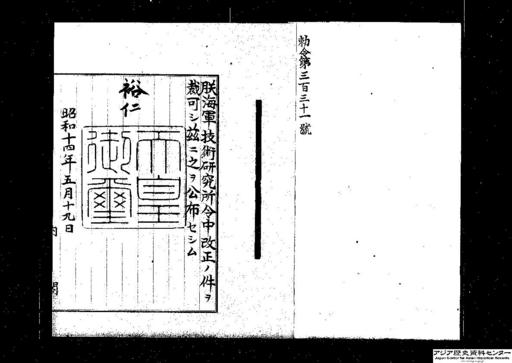 勅令第三百三十一號
朕海軍技術研究所令中改正ノ件ヲ
裁可シ茲ニ之ヲ公布セシム
裕仁
天皇御璽
昭和十四年五月十九日
内閣
アジア歴史資料センター
Japan Center for Asian Historical Records